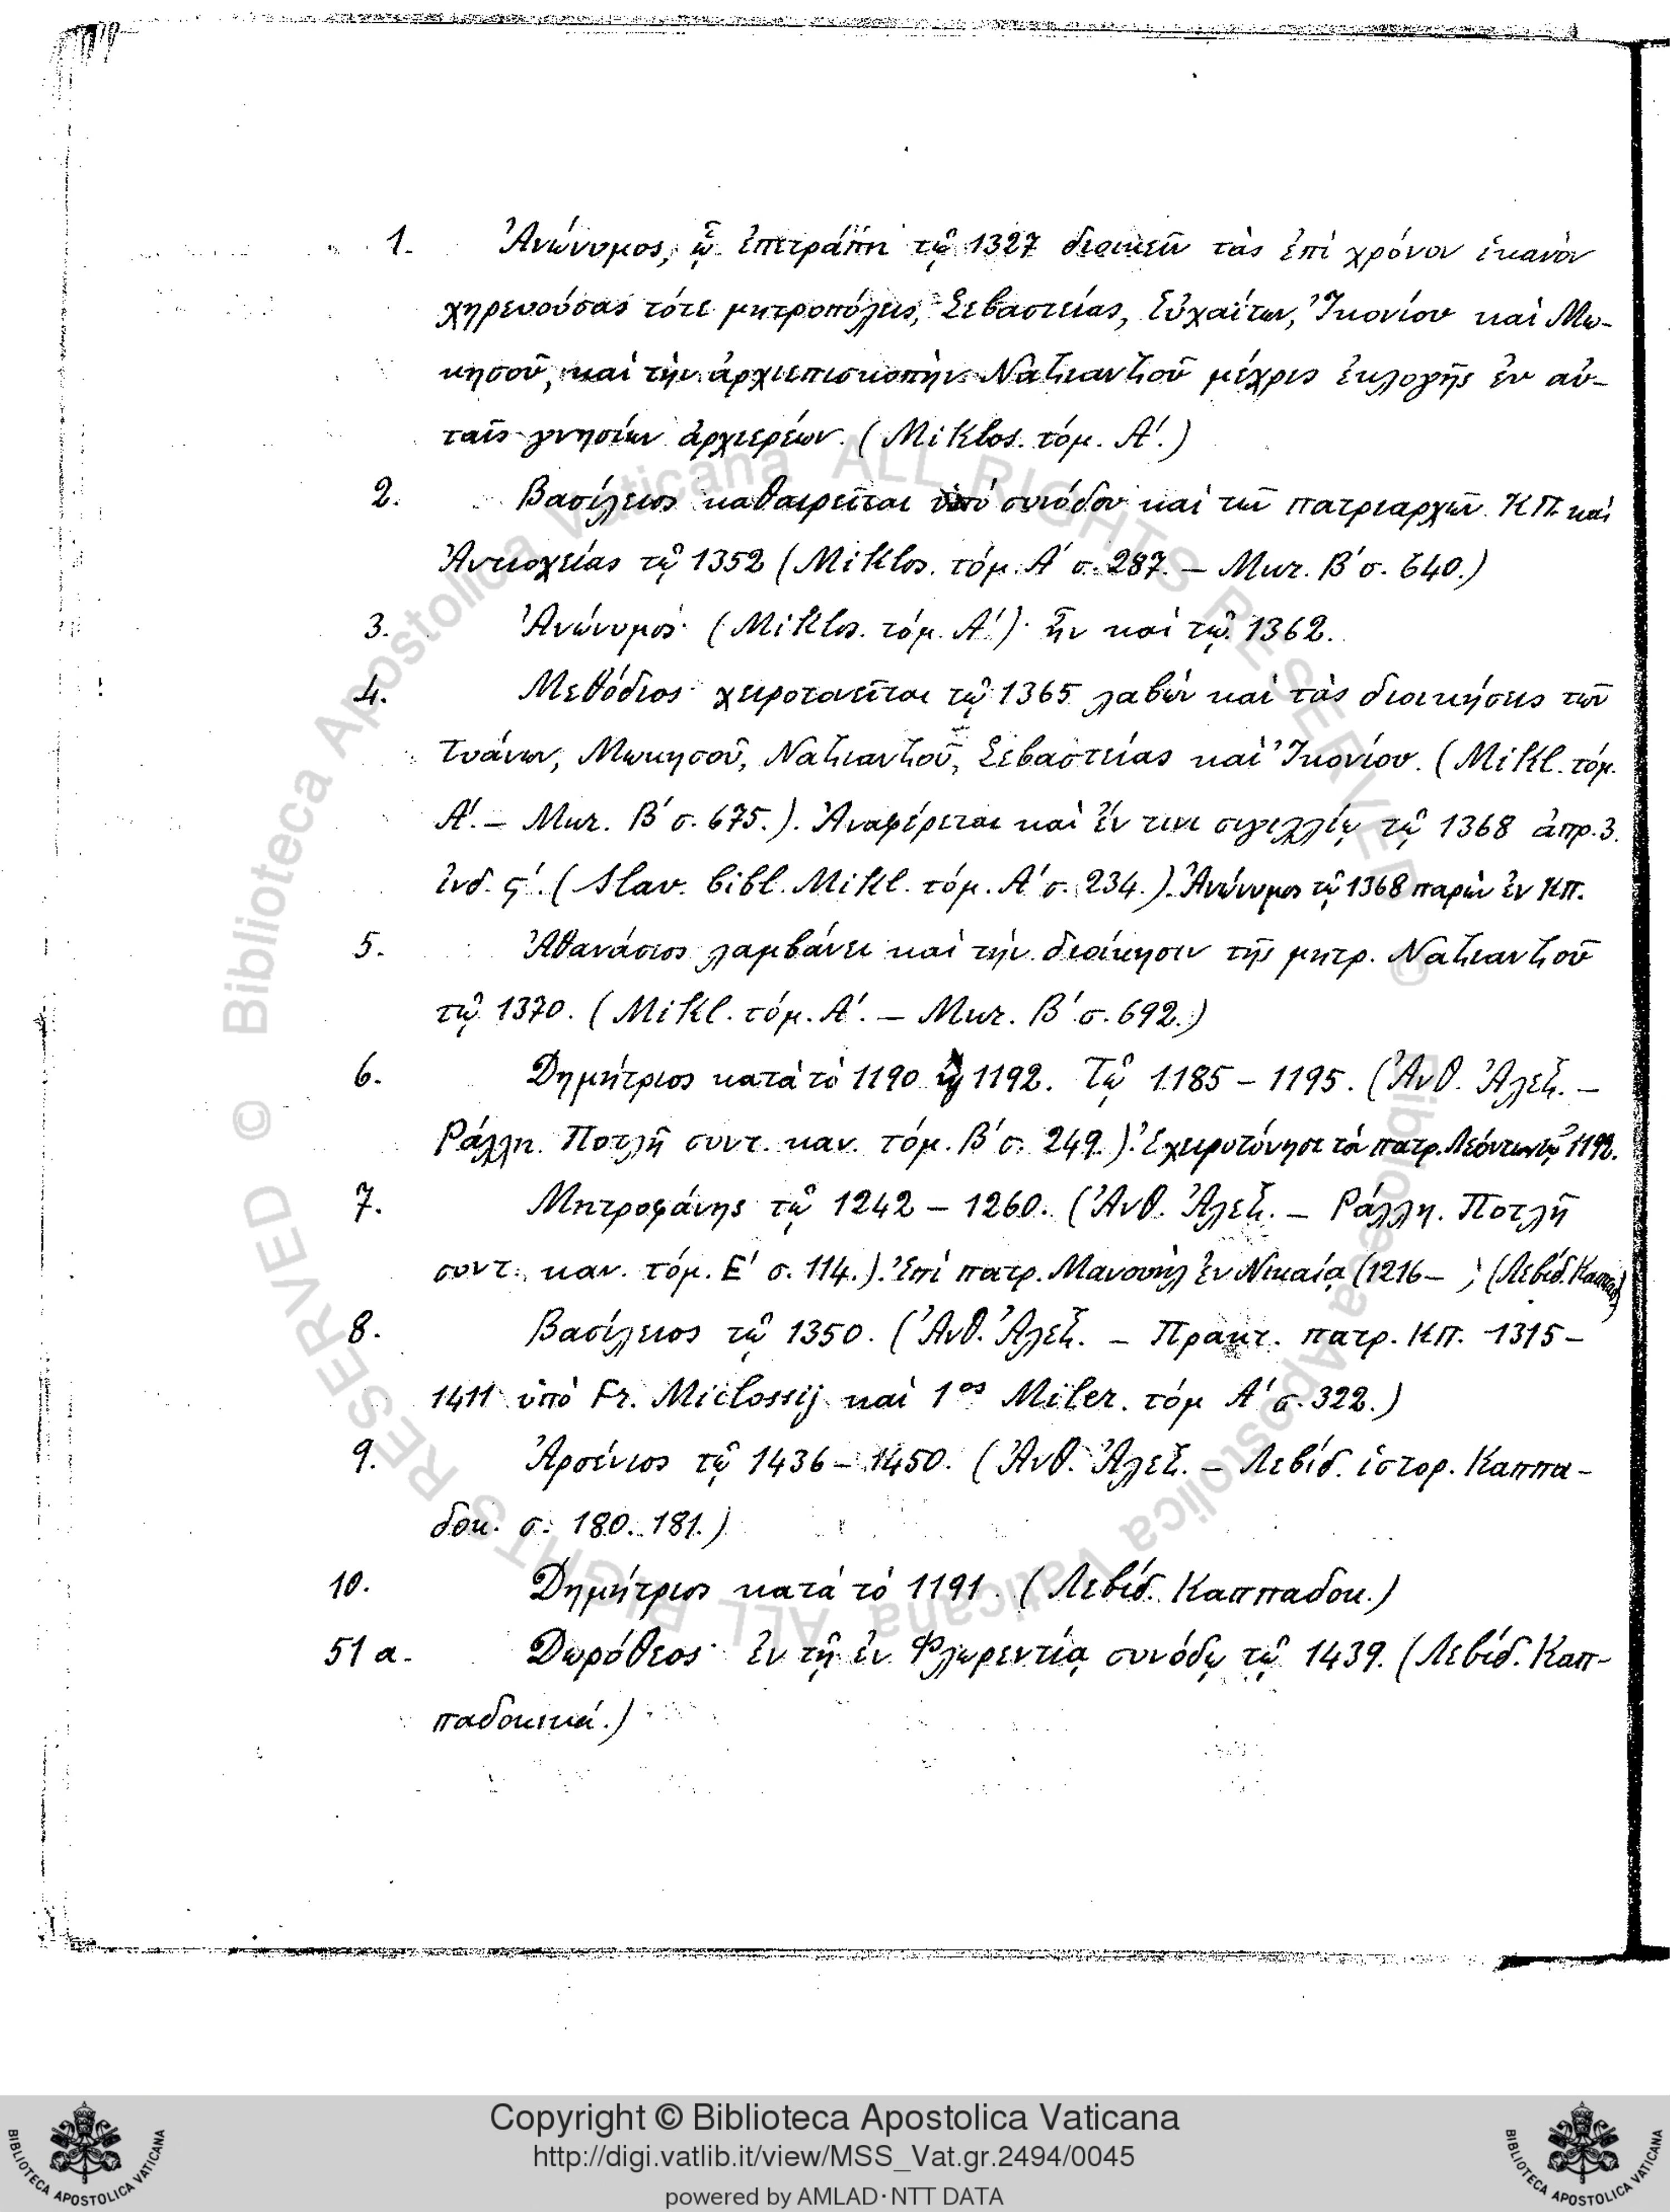 1. Ἀνώνυμος, ᾧ ἐπετράπη τῷ 1327 διοικεῖν τὰς ἐπὶ χρόνον ἱκανὸν
χηρευούσας τότε μητροπόλεις, Σεβαστείας, Εὐχαΐτων, Ἰκονίου καὶ Μω-
κησοῦ, καὶ τὴν ἀρχιεπισκοπὴν Ναζιανζοῦ μέχρις ἐκλογῆς ἐν αὐ-
ταῖς γνησίων ἀρχιερέων. (Miklos. τόμ. Α΄.)
2. Βασίλειος καθαιρεῖται ὑπὸ συνόδου καὶ τῶν πατριαρχῶν ΚΠ. καὶ
Ἀντιοχείας τῷ 1352 (Miklos. τόμ. Α΄ σ. 287. – Μυζ. Β΄ σ. 640.)
3. Ἀνώνυμος· (Miklos. τόμ. Α΄)· ἦν καὶ τῷ 1362.
4. Μεθόδιος· χειροτονεῖται τῷ 1365 λαβὼν καὶ τὰς διοικήσεις τῶν
Τυάνων, Μωκησοῦ, Ναζιανζοῦ, Σεβαστείας καὶ Ἰκονίου. (Mikl. τόμ.
Α΄. – Μυζ. Β΄ σ. 675.). Ἀναφέρεται καὶ ἔν τινι σιγιλλίῳ τῷ 1368 ἀπρ. 3.
ἰνδ. ς΄. (Slav. bibl. Mikl. τόμ. Α΄ σ. 234.). Ἀνώνυμος τῷ 1368 παρὼν ἐν ΚΠ.
5. Ἀθανάσιος λαμβάνει καὶ τὴν διοίκησιν τῆς μητρ. Ναζιανζοῦ
τῷ 1370. (Mikl. τόμ. Α΄. – Μυζ. Β΄ σ. 692.)
6. Δημήτριος κατὰ τὸ 1190 1192. Τῷ 1185 – 1195. (Ἀνθ. Ἀλεξ. –
Ράλλη. Ποτλῆ συντ. καν. τόμ. Β΄ σ. 249.). Ἐχειροτόνησε τὸν πατρ. Λεόντιον τῷ 1192.
7. Μητροφάνης τῷ 1242 – 1260. (Ἀνθ. Ἀλεξ. – Ράλλη. Ποτλῆ
συντ. καν. τόμ. Ε΄ σ. 114.). Ἐπὶ πατρ. Μανουὴλ ἐν Νικαίᾳ (1216 – ) (Λεβίδ. Καππαδ)
8. Βασίλειος τῷ 1350. (Ἀνθ. Ἀλεξ. – Πρακτ. πατρ. ΚΠ. 1315 –
1411 ὑπὸ Fr. Miclossij καὶ 1ος Miler. τόμ Α΄ σ. 322.)
9. Ἀρσένιος τῷ 1436 – 1450. (Ἀνθ. Ἀλεξ. – Λεβίδ. ἱστορ. Καππα-
δοκ. σ. 180. 181.)
10. Δημήτριος κατὰ τὸ 1191. (Λεβίδ. Καππαδοκ.)
51 α. Δωρόθεος· ἐν τῇ ἐν Φλωρεντίᾳ συνόδῳ τῷ 1439. (Λεβίδ. Καπ-
παδοκικά.)
© Biblioteca Apostolica Vaticana ALL RIGHTS RESERVED © Biblioteca Apostolica Vaticana ALL RIGHTS RESERVED
Copyright © Biblioteca Apostolica Vaticana
http://digi.vatlib.it/view/MSS_Vat.gr.2494/0045
powered by AMLAD·NTT DATA
BIBLIOTECA APOSTOLICA VATICANA
BIBLIOTECA APOSTOLICA VATICANA